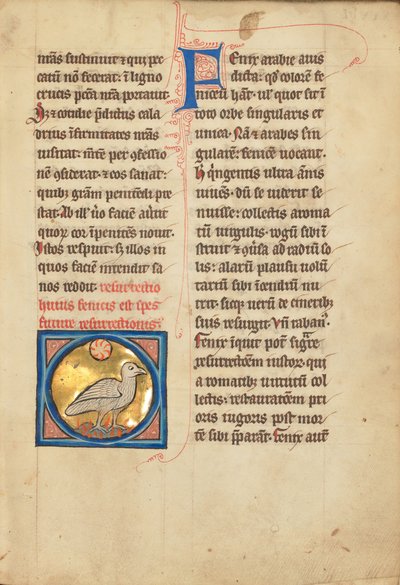 nr̄as sustinuit ⁊ qui pec
catum nō fecerat: ī ligno
crucis pctā nrā portauit.
⁊ cotidie p̄dictus cala
drius īfirmitates nr̄as
uisitat: mēte per ꝯfessio
nem ꝯsiderat: ⁊ eos sanat:
quibꝫ grām penitēdi pre
stat. Ab ill' ūo faciē auert̄it
quoꝝ cor īpenitēs nouit.
Istos respuit: sꝫ illos in
quos faciē intendit sa
nos reddit. resurrectio
huius fenicis est spes
future resurrectionis.
Fenix arabie auis
dicta: qd̄ colorē fe
niceū hāt. ul' quot sit ī
toto orbe singularis et
unica. Nā ⁊ arabes sin
gularē: fenicē uocant.
h̄ q̇ngentis ultra ānis
uiuēs. dū se uiderit se
nuisse: collectis aroma
tū uirgulis. rogū sibi ī
struit ⁊ ꝯūsa ad radiū so
lis: alarū plausu uolū
tariū sibi īcendiū nu
trit. sicqꝫ uerū de cineribꝫ
suis resurgit. Vn̄ raban'.
Fenix īquit pot̄ sig̅re
resurrectōem iustoꝝ. qui
aromatibꝫ uirtutū col
lectis: restauratōem pri
oris uigoris post mor
tē sibi p̄parāt. Fenix aut̄